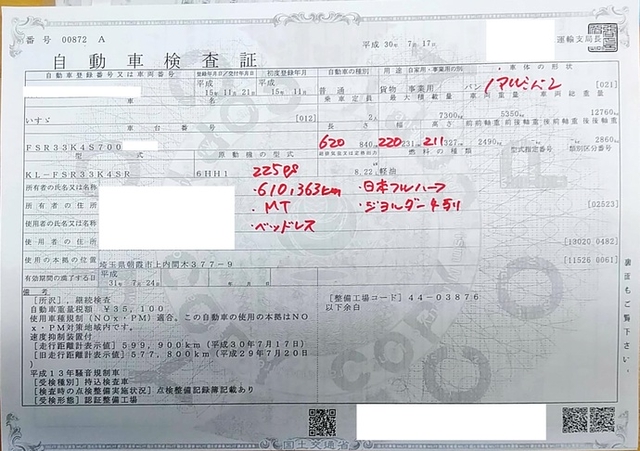 番号 00872 A
平成 30年 7月17日
運輸支局長
自動車検査証
自動車登録番号又は車両番号 登録年月日/交付年月日 初度登録年月 自動車の種別 用途 自家用・事業用の別 車体の形状
平成 15年11月21日 平成 15年11月 普通 貨物 事業用 バン アルミバン [021]
車名 乗車定員 最大積載量 車両重量 車両総重量
いすゞ [012] 2人 7300kg 5350kg 12760kg
車台番号 長さ 幅 高さ 前前軸重 前後軸重 後前軸重 後後軸重
FSR33K4S700 620 840cm 220 231cm 211 327cm 2490 2860kg
型式 原動機の型式 総排気量又は定格出力 燃料の種類 型式指定番号 類別区分番号
KL-FSR33K4SR 6HH1 225ps 8.22L 軽油
所有者の氏名又は名称 ・610,363km ・日本フルハーフ
所有者の住所 ・MT ・ジョルダー4列 [02523]
使用者の氏名又は名称 ・ベッドレス
使用者の住所 [13020 0482]
使用の本拠の位置 埼玉県朝霞市上内間木377-9 [11526 0061]
有効期間の満了する日 平成 31年 7月24日
裏面もご覧下さい。
備考
[所沢],継続検査 [整備工場コード] 44-03876
自動車重量税額 ¥35,100 以下余白
使用車種規制(NOx・PM)適合。この自動車の使用の本拠はNO
x・PM対策地域内です。
速度抑制装置付
[走行距離計表示値] 599,900km(平成30年7月17日)
[旧走行距離計表示値] 577,800km(平成29年7月20日)
平成13年騒音規制車
[受検種別] 持込検査車
[検査時の点検整備実施状況] 点検整備記録簿記載あり
[受検形態] 認証整備工場
国土交通省